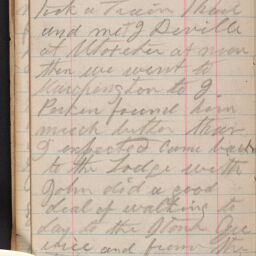 Took a train
and met J Deville
at Utoxeter at noon
then we went to
to J
Perkin found him
much better than
I expected came back
to the Lodge with
John did a good
deal of walking to
day to the Stone Que
and from the